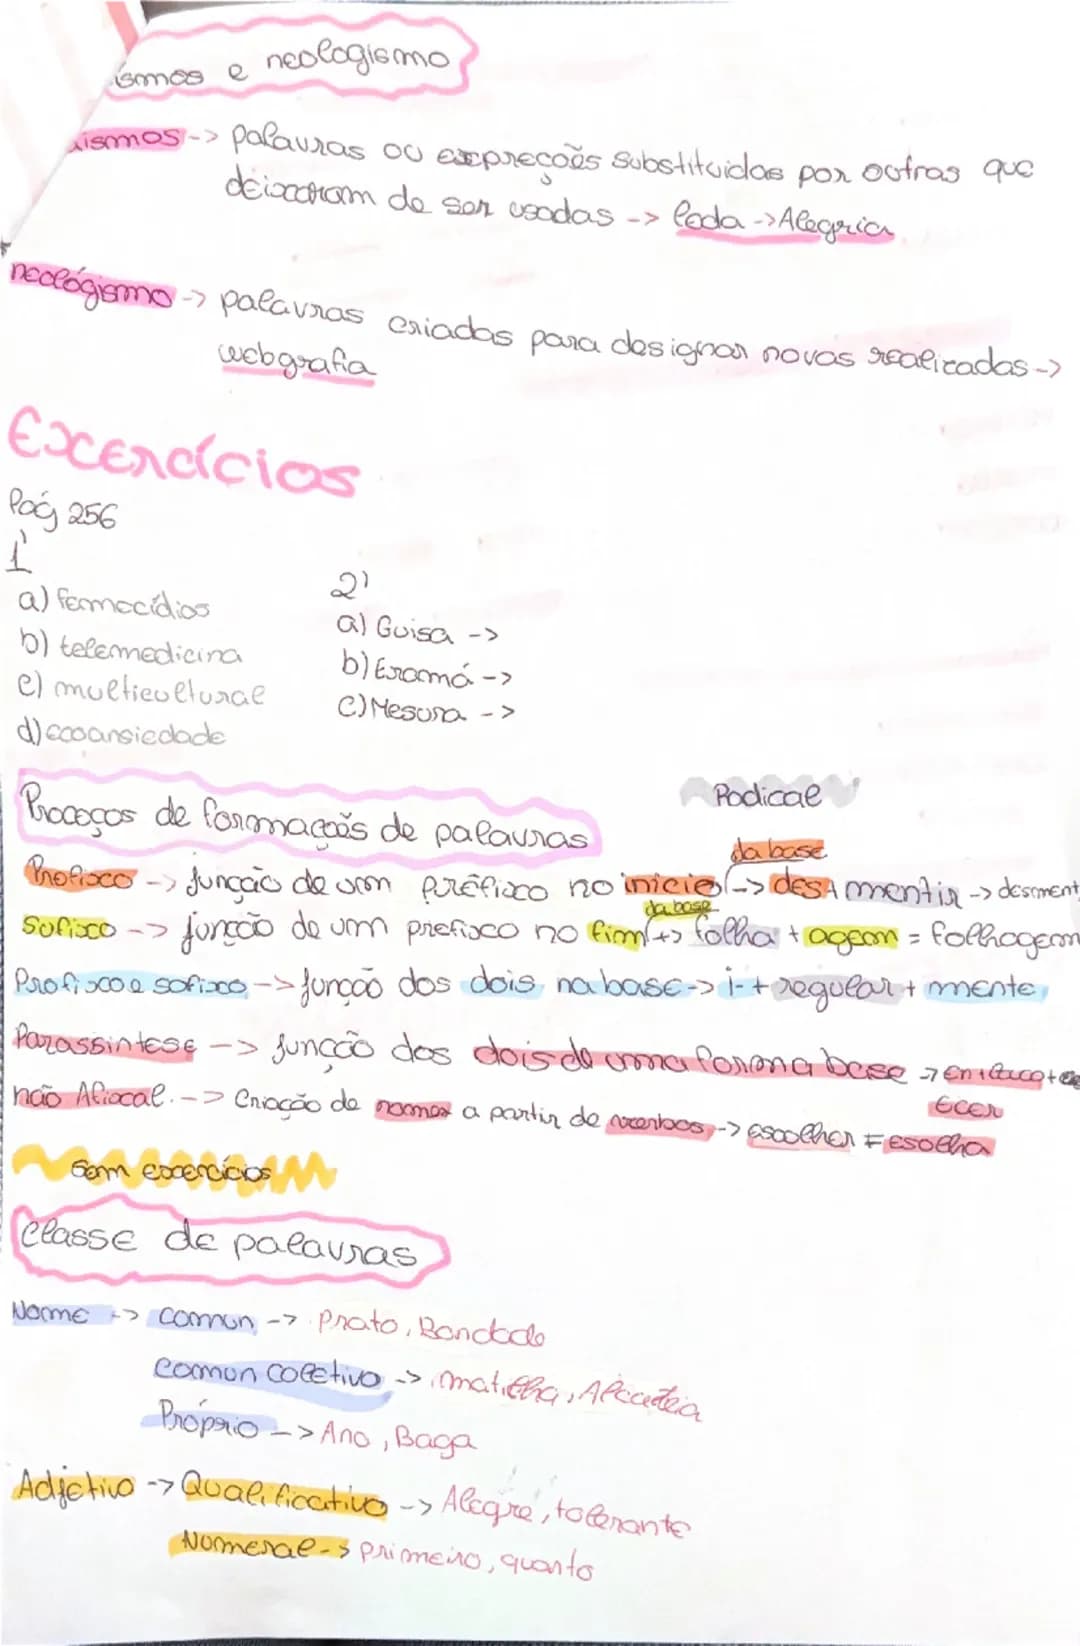 ismos e neologismo
ismos -> palavras ou expreções substituidas por outras que
deixaram de ser usadas -> leda -> Alegria
neológismo -> palavras criadas para designar novas realizadas ->
webgrafia
Excercícios
Pág 256
1'
a) femocídios
b) telemedicina
c) multicultural
d) ecoansiedade
2'
a) Guisa ->
b) Eramá ->
c) Mesura ->
Radical
Proceços de formaçoãs de palavras
da base
Prefixo -> junção de um préfixo no inicio -> des + mentir -> desment
da base
Sufixo -> junção de um prefixo no fim -> folha + agem = folhagem
Prefixo e sofixo -> junção dos dois na base -> i- + regular + mente
Parassintese -> juncção dos dois de uma forma base -> en + louco +
Ecer
não Afixal. -> Criação de nomes a partir de verbos -> escolher = Esolha
Sem excercícios
Classe de palavras
Nome -> comun -> Prato, Bondade
Comun coletivo -> matilha, Alcateia
Próprio -> Ano, Baga
Adjetivo -> Qualificativo -> Alegre, tolerante
Numeral -> primeiro, quarto